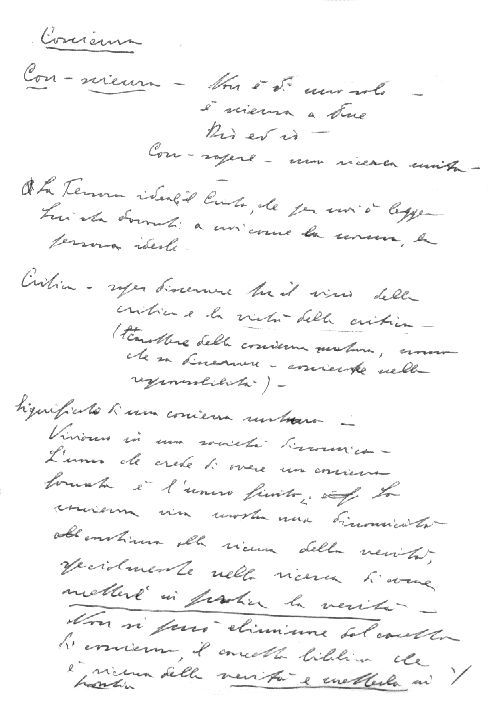 Coscienza
Con-scienza - Non è di uno solo -
è scienza a due
Dio ed io -
Con-sapere - una ricerca unita -
La Persona ideale è Cristo, che per noi è legge
Lui sta davanti a noi come la norma, la
persona ideale.
Critica - saper discernere tra il vizio della
critica e la virtù della critica -
(carattere della coscienza matura, uomo
che sa discernere - cosciente nella
responsabilità) -
Significato di una coscienza matura -
Viviamo in una società dinamica -
L'uomo che crede di avere una coscienza
formata è l'uomo finito; la
coscienza viva mostra una dinamicità
alla ricerca della verità,
specialmente nella ricerca di come
mettere in pratica la verità -
Non si può eliminare dal concetto
di coscienza, il concetto biblico che
è ricerca della verità e metterla in
pratica